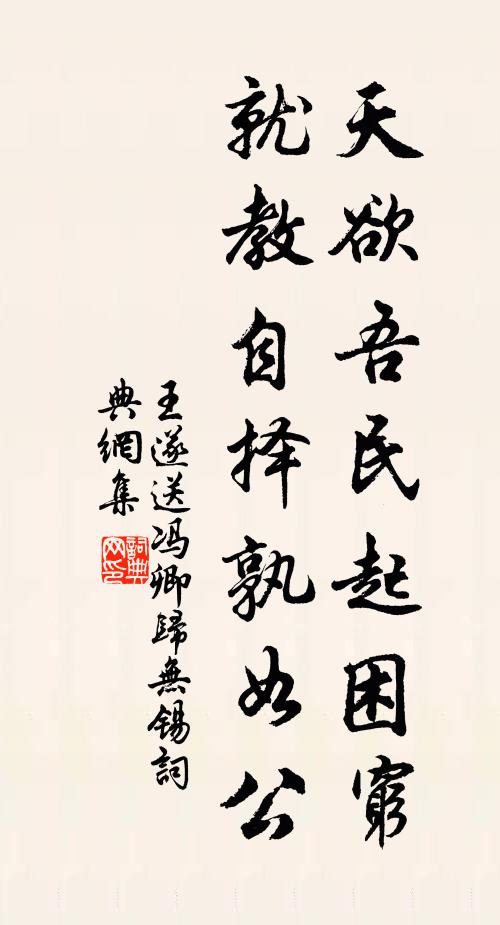 天欲吾民起困窮
就教自择孰如公
王遂送冯卿歸無锡詞
典網集
詞典
网印